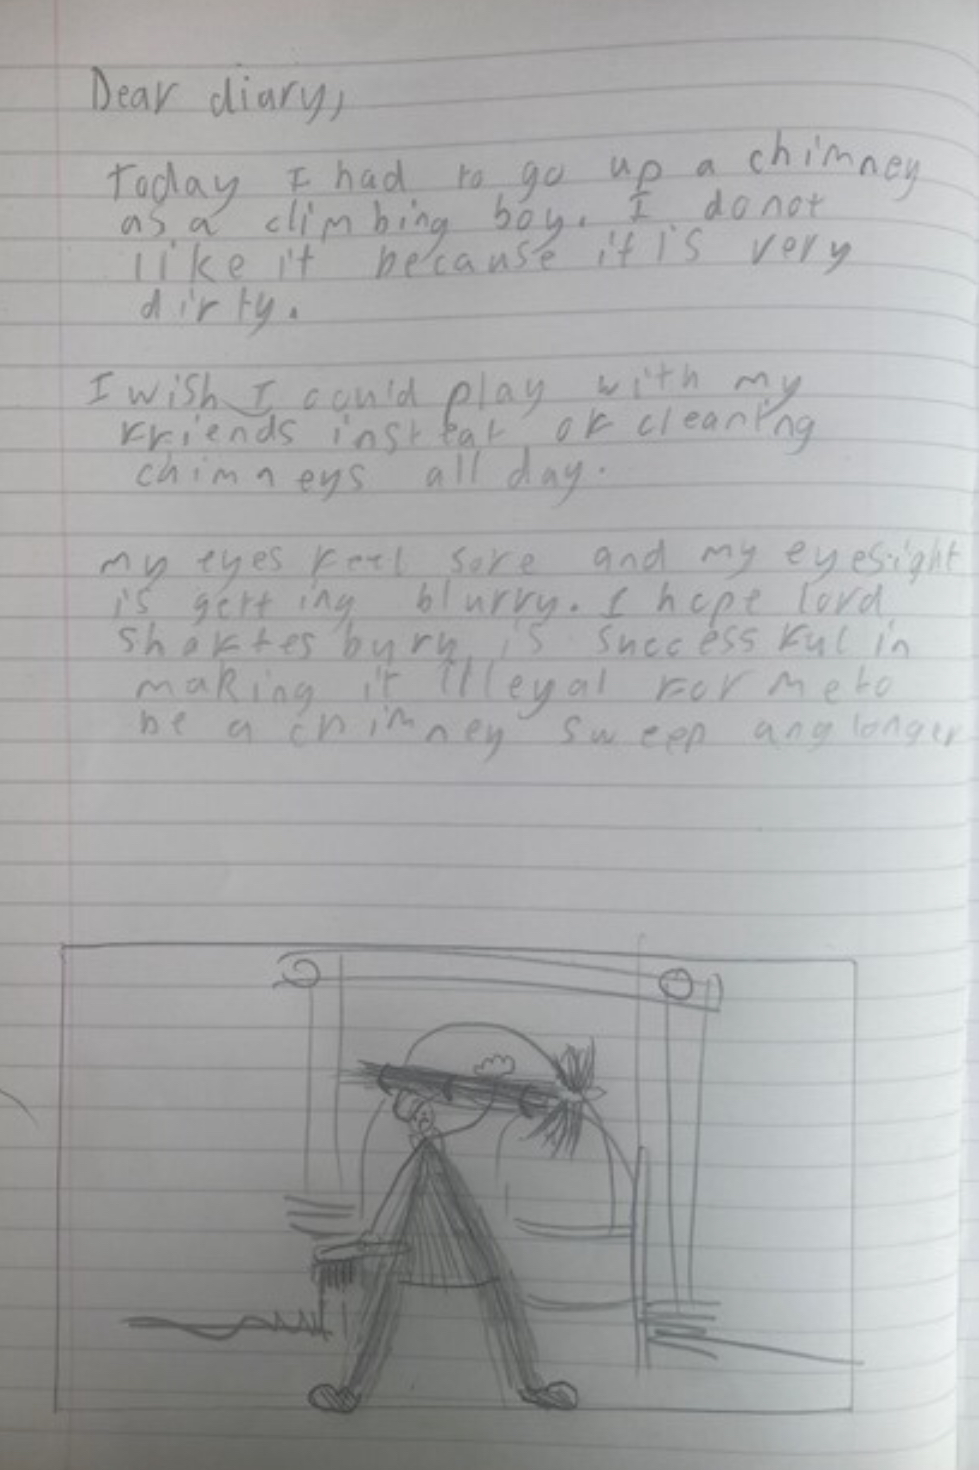 Dear diary,
Today I had to go up a chimney
as a climbing boy. I do not
like it because it is very
dirty.
I wish I could play with my
friends insteat of cleaning
chimneys all day.
my eyes feel sore and my eyesight
is getting blurry. I hope lord
shaftesbury is successful in
making it illegal for me to
be a chimney sweep any longer